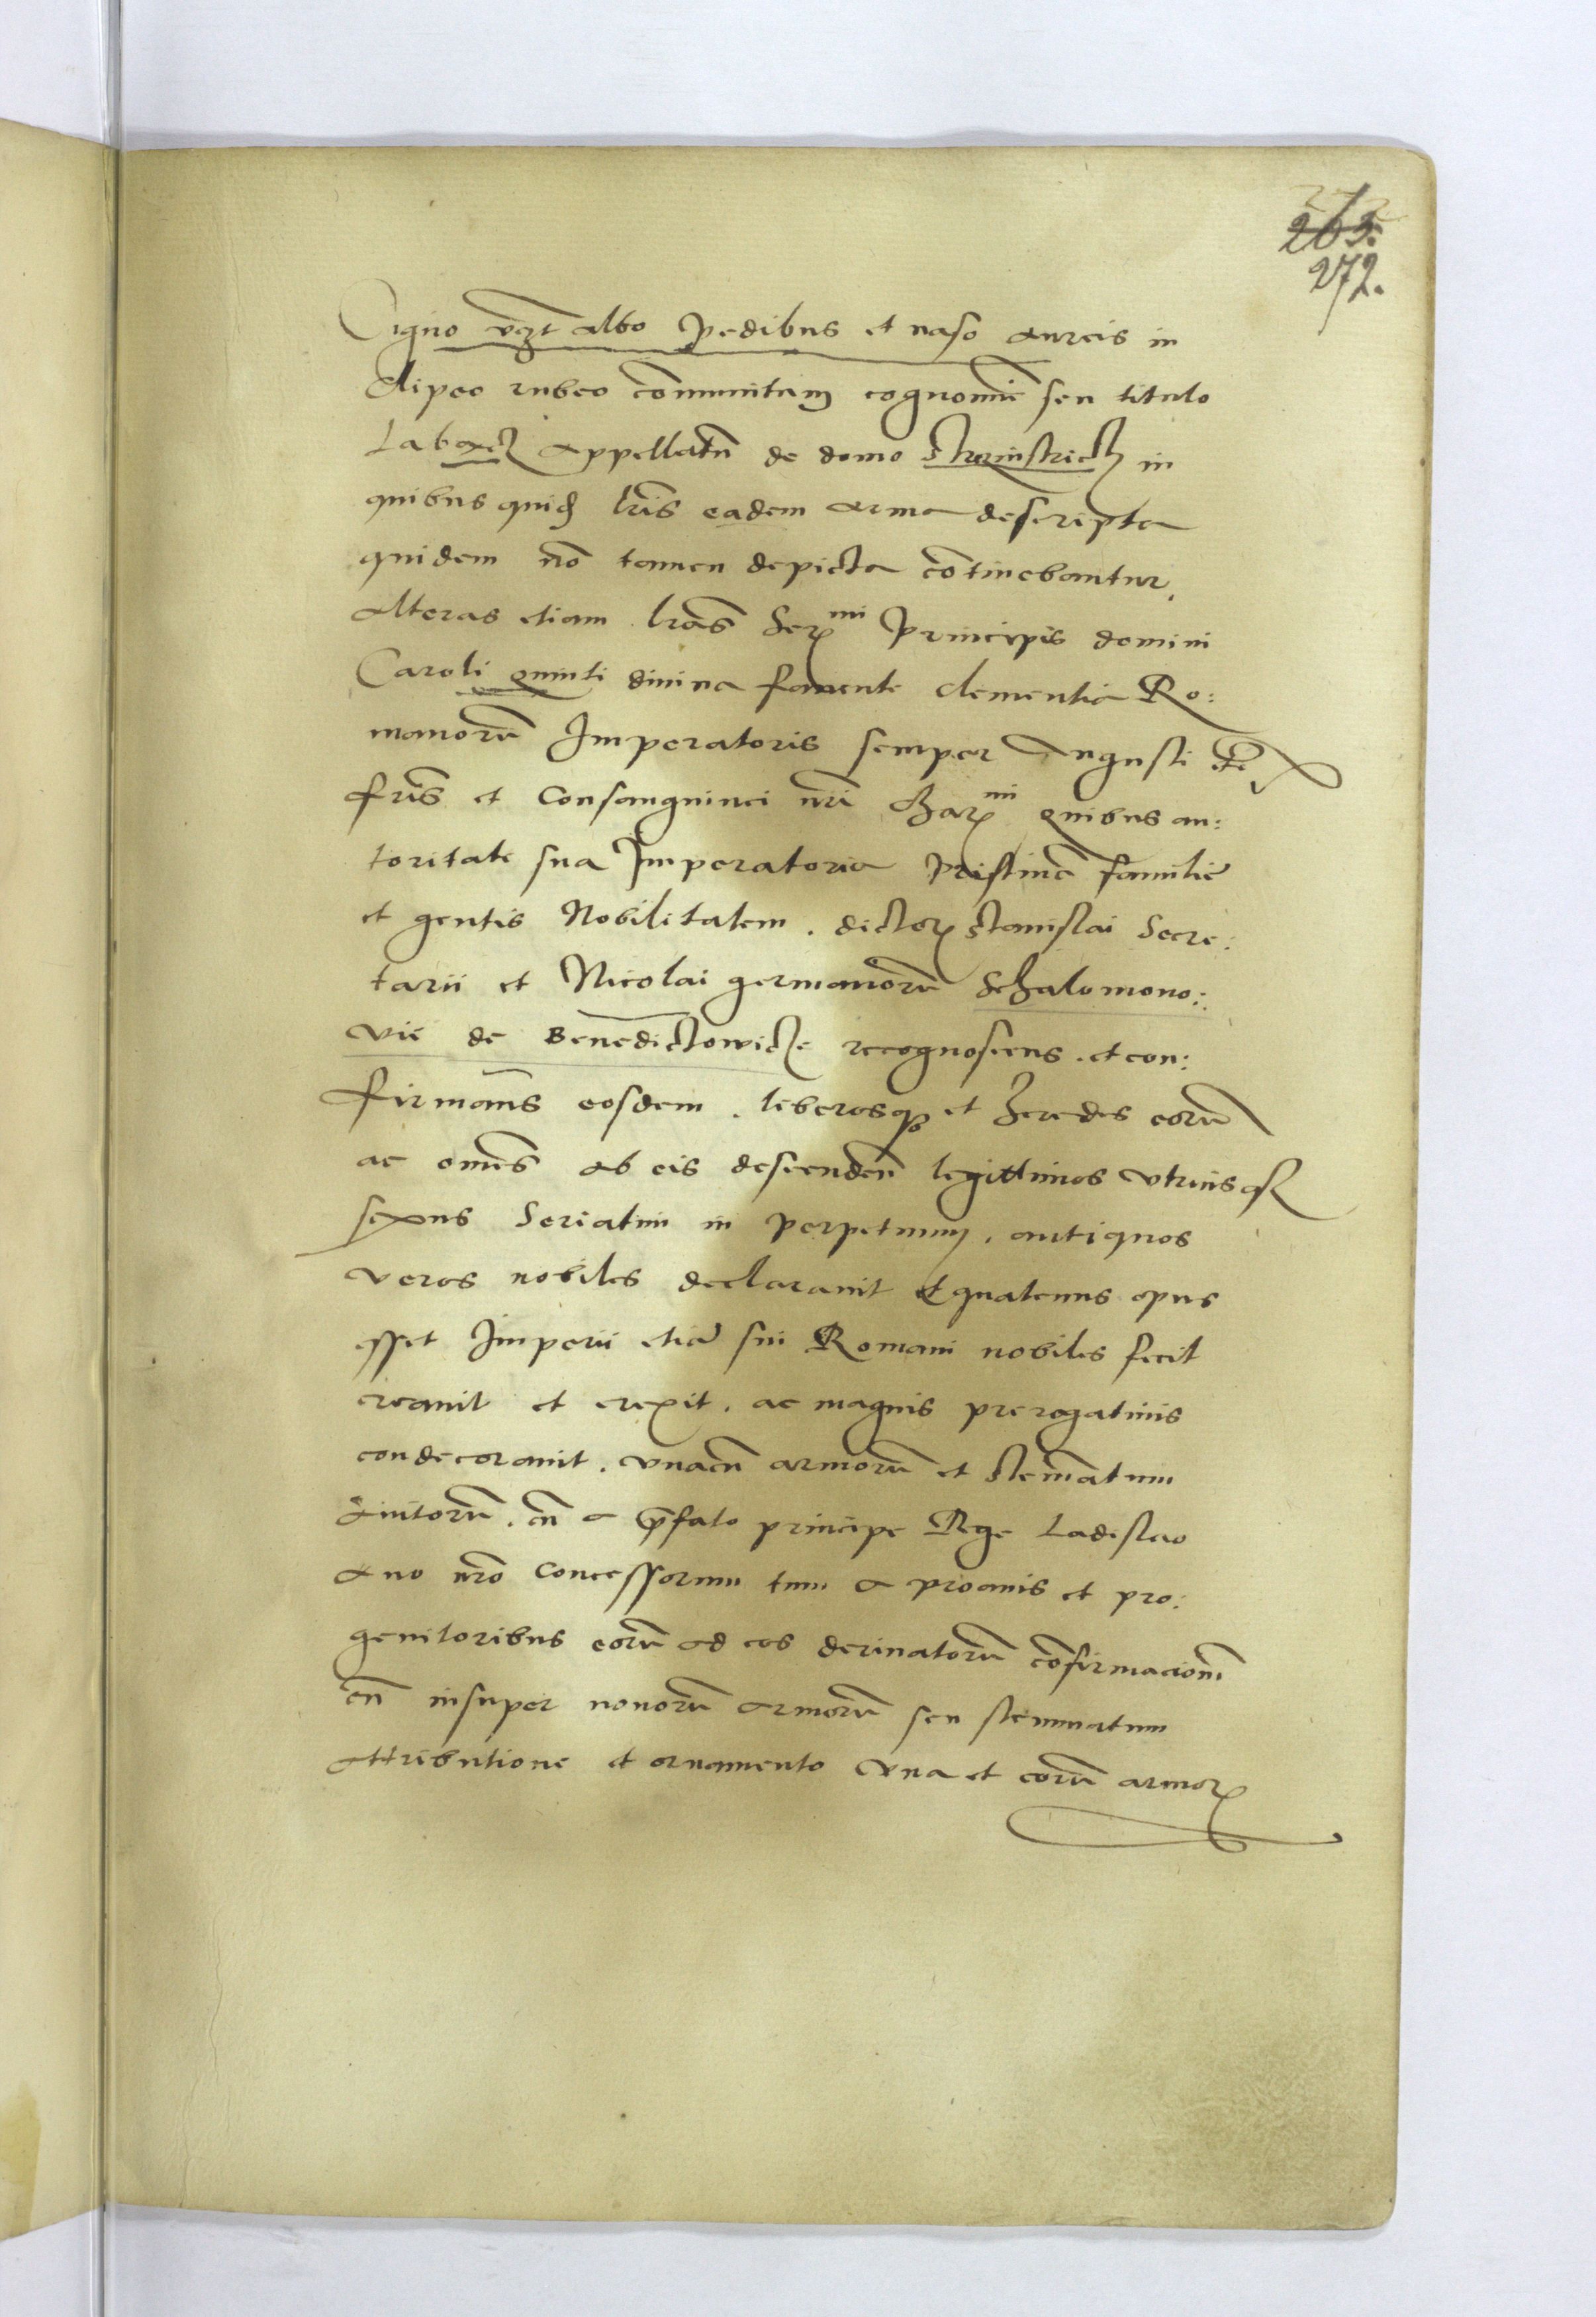 272
263.
272.
Cigno vczt albo pedibus et naso aureis in
clipeo rubeo cōmunitam cognomīe seu titulo
Labacz appellatū de domo in
quibus quidē lrīs eadem arma descripta
quidem nō tamen depicta cōtinebantur,
alteras etiam lrās Serᵐⁱ Principis domini
Caroli quinti diuina fauente clementia Ro:
manorū Imperatoris semper Augusti etc̄
fris̄ et consanguinei nrī charᵐⁱ quibus au:
toritate sua Imperatoria pristinā familiē
et gentis Nobilitatem. dictorꝝ Stanislai Secre:
tarii et Nicolai germanorū Schalomono:
vie de Benedictowicze recognoscens. et con:
firmans eosdem. liberosqꝫ et heredes eorū
ac omēs ab eis descendeñ legittimos vtriusqꝫ
sexus Seriatim in perpetuum, antiquos
veros nobiles declarauit Et quatenus opus
esset Imperii etiā sui Romani nobiles fecit
creauit et erexit. ac magnis prerogatiuis
condecorauit. vnacū armorū et stem̄atum
auitorū. cū a p̄fato principe Rege Ladislao
auo nrō concessorum tum a proauis et pro:
genitoribus eorū ad eos deriuatorū cōfirmacionē
cū insuper nouorū armorū seu stemmatum
attributione et ornamento vna et eorū armorꝝ